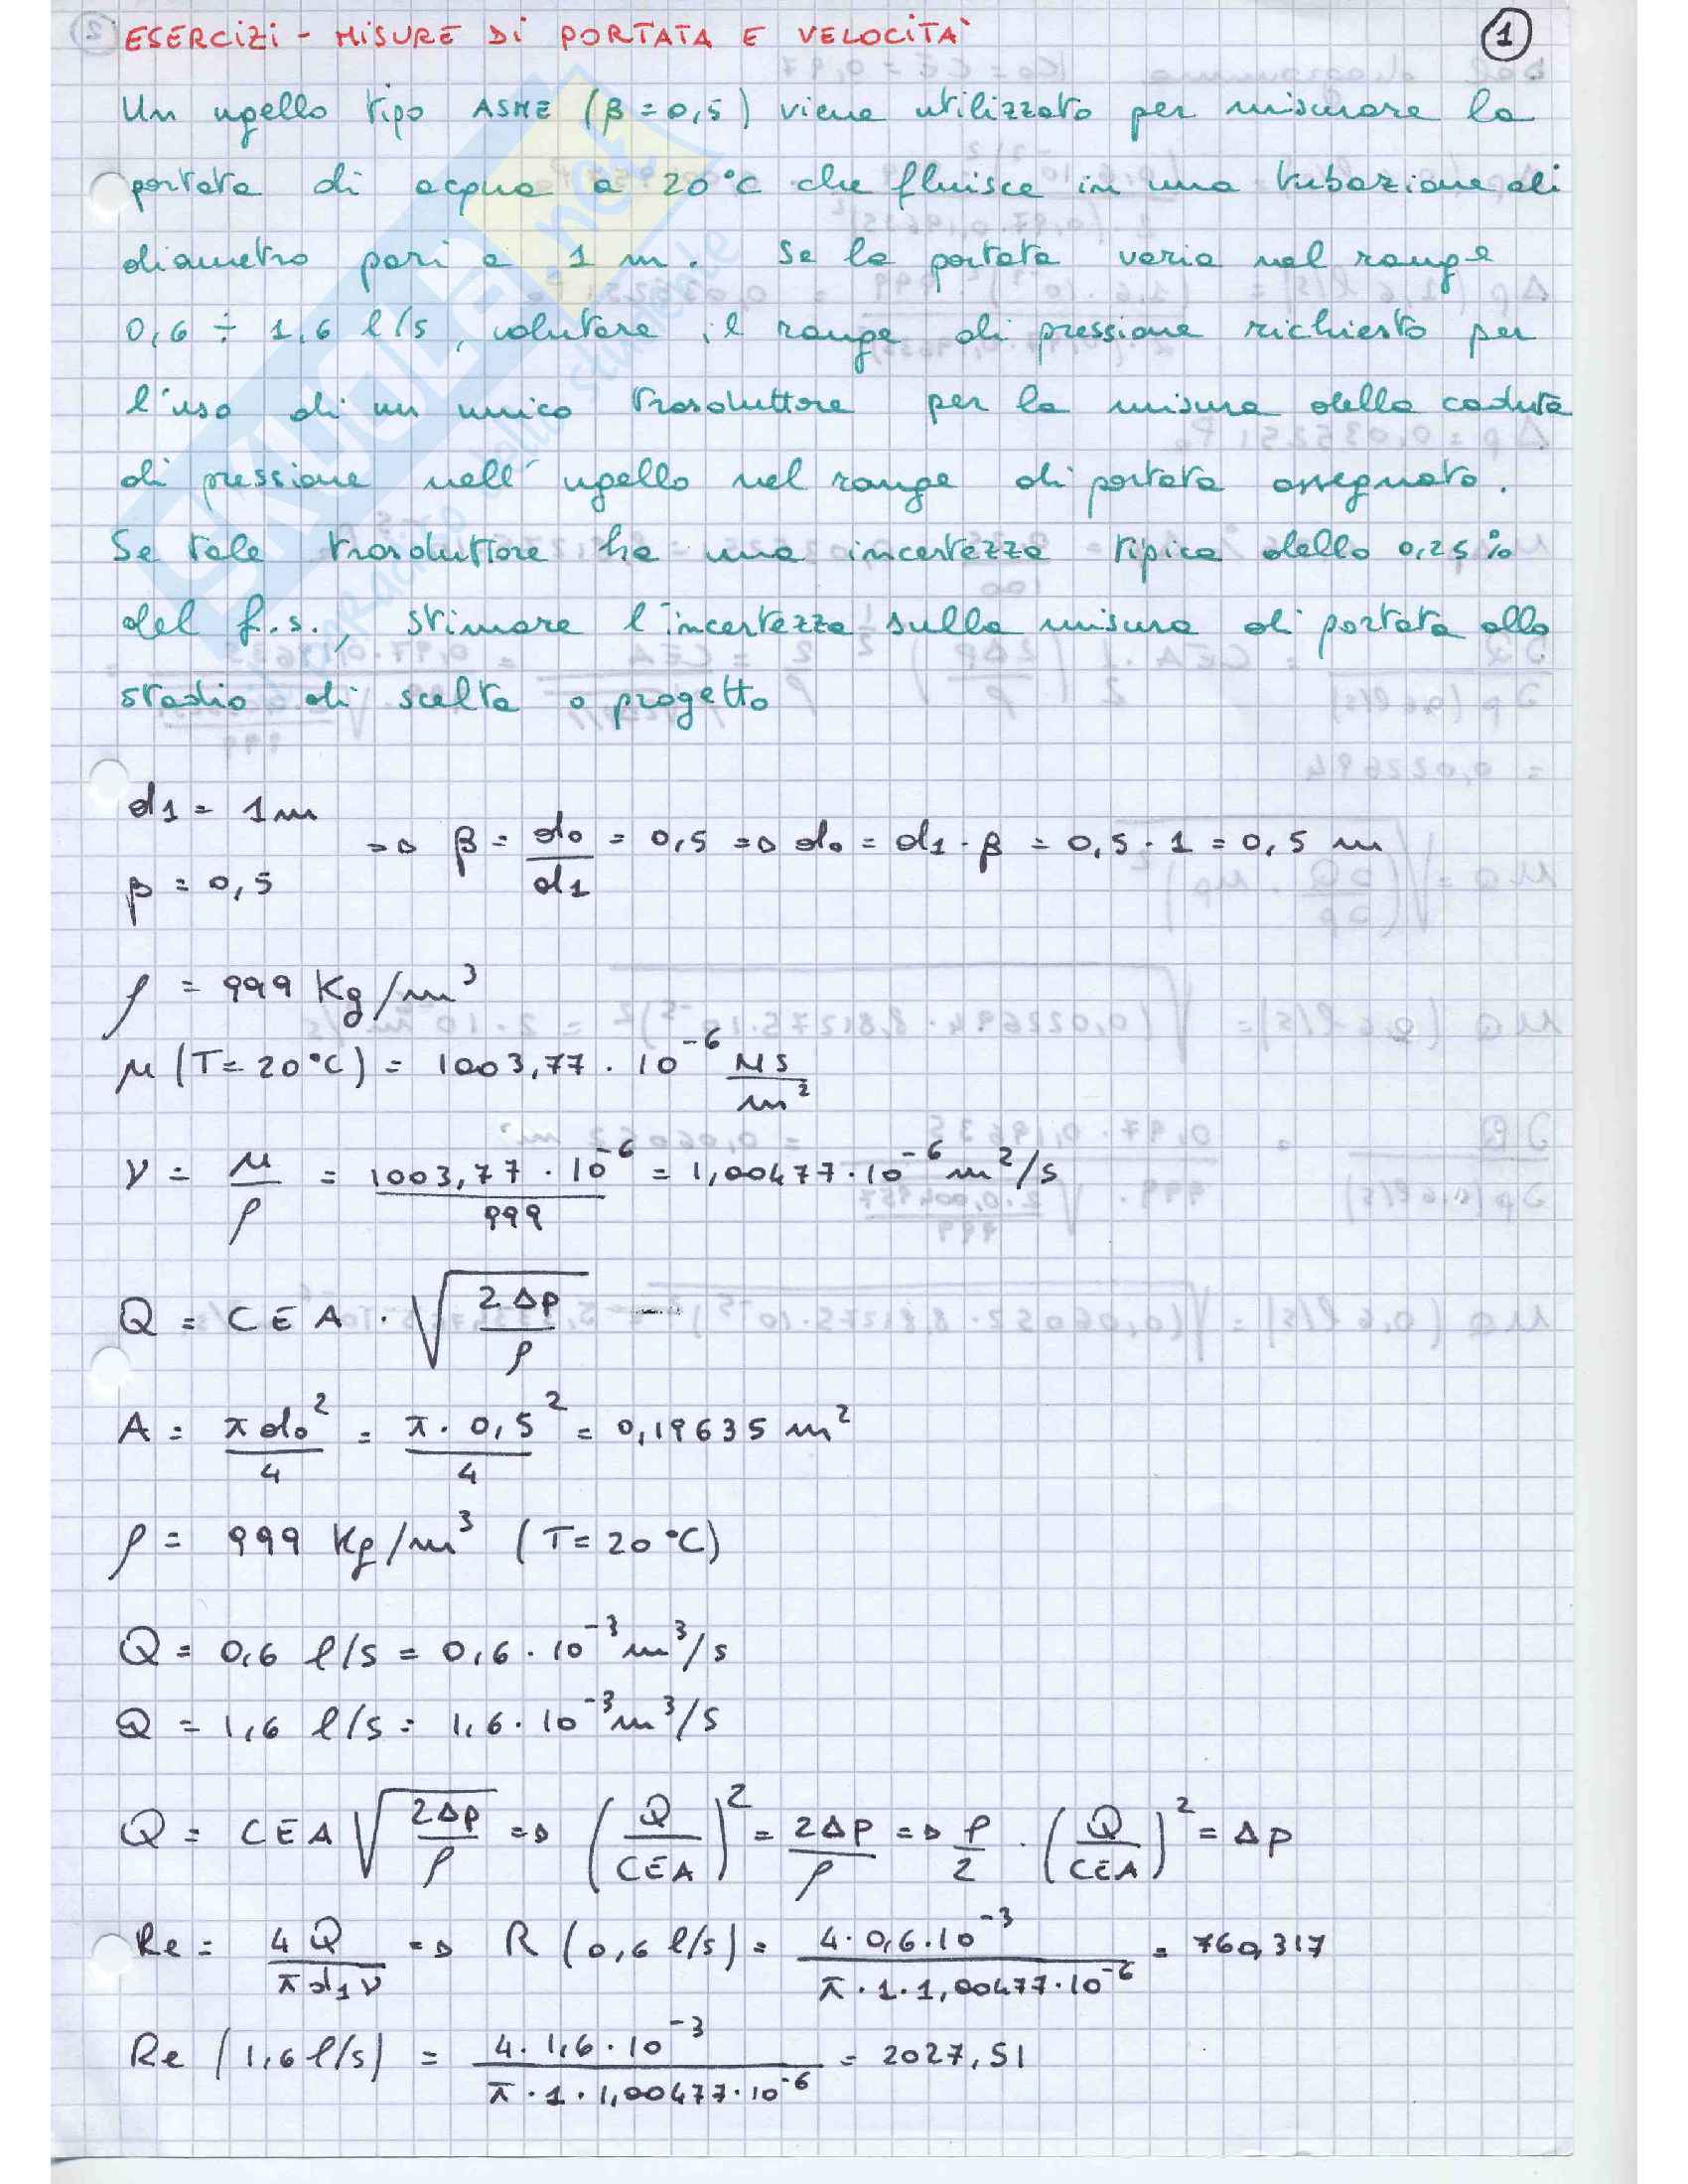 ESERCIZI - MISURE DI PORTATA E VELOCITÀ
1
Un ugello tipo ASME (β=0,5) viene utilizzato per misurare la
portata di acqua a 20°C che fluisce in una tubazione di
diametro pari a 1 m. Se la portata varia nel range
0,6 ÷ 1,6 l/s, valutare il range di pressione richiesto per
l'uso di un unico trasduttore per la misura della caduta
di pressione nell'ugello nel range di portata assegnato.
Se tale trasduttore ha una incertezza tipica dello 0,25%
del f.s., stimare l'incertezza sulla misura di portata allo
stadio di scelta o progetto
d1 = 1m
β = 0,5
=> β = d0/d1 = 0,5 => d0 = d1 · β = 0,5 · 1 = 0,5 m
ρ = 999 Kg/m³
μ (T= 20°C) = 1003,77 · 10⁻⁶ Ns/m²
ν = μ/ρ = 1003,77 · 10⁻⁶/999 = 1,00477 · 10⁻⁶ m²/s
Q = CEA · √(2Δp/ρ)
A = πd0²/4 = π · 0,5²/4 = 0,19635 m²
ρ = 999 Kg/m³ (T= 20°C)
Q = 0,6 l/s = 0,6 · 10⁻³ m³/s
Q = 1,6 l/s = 1,6 · 10⁻³ m³/s
Q = CEA √(2Δp/ρ) => (Q/CEA)² = 2Δp/ρ => ρ/2 · (Q/CEA)² = Δp
Re = 4Q/πd1ν => R (0,6 l/s) = 4 · 0,6 · 10⁻³/π · 1 · 1,00477 · 10⁻⁶ = 760,317
Re (1,6 l/s) = 4 · 1,6 · 10⁻³/π · 1 · 1,00477 · 10⁻⁶ = 2027,51